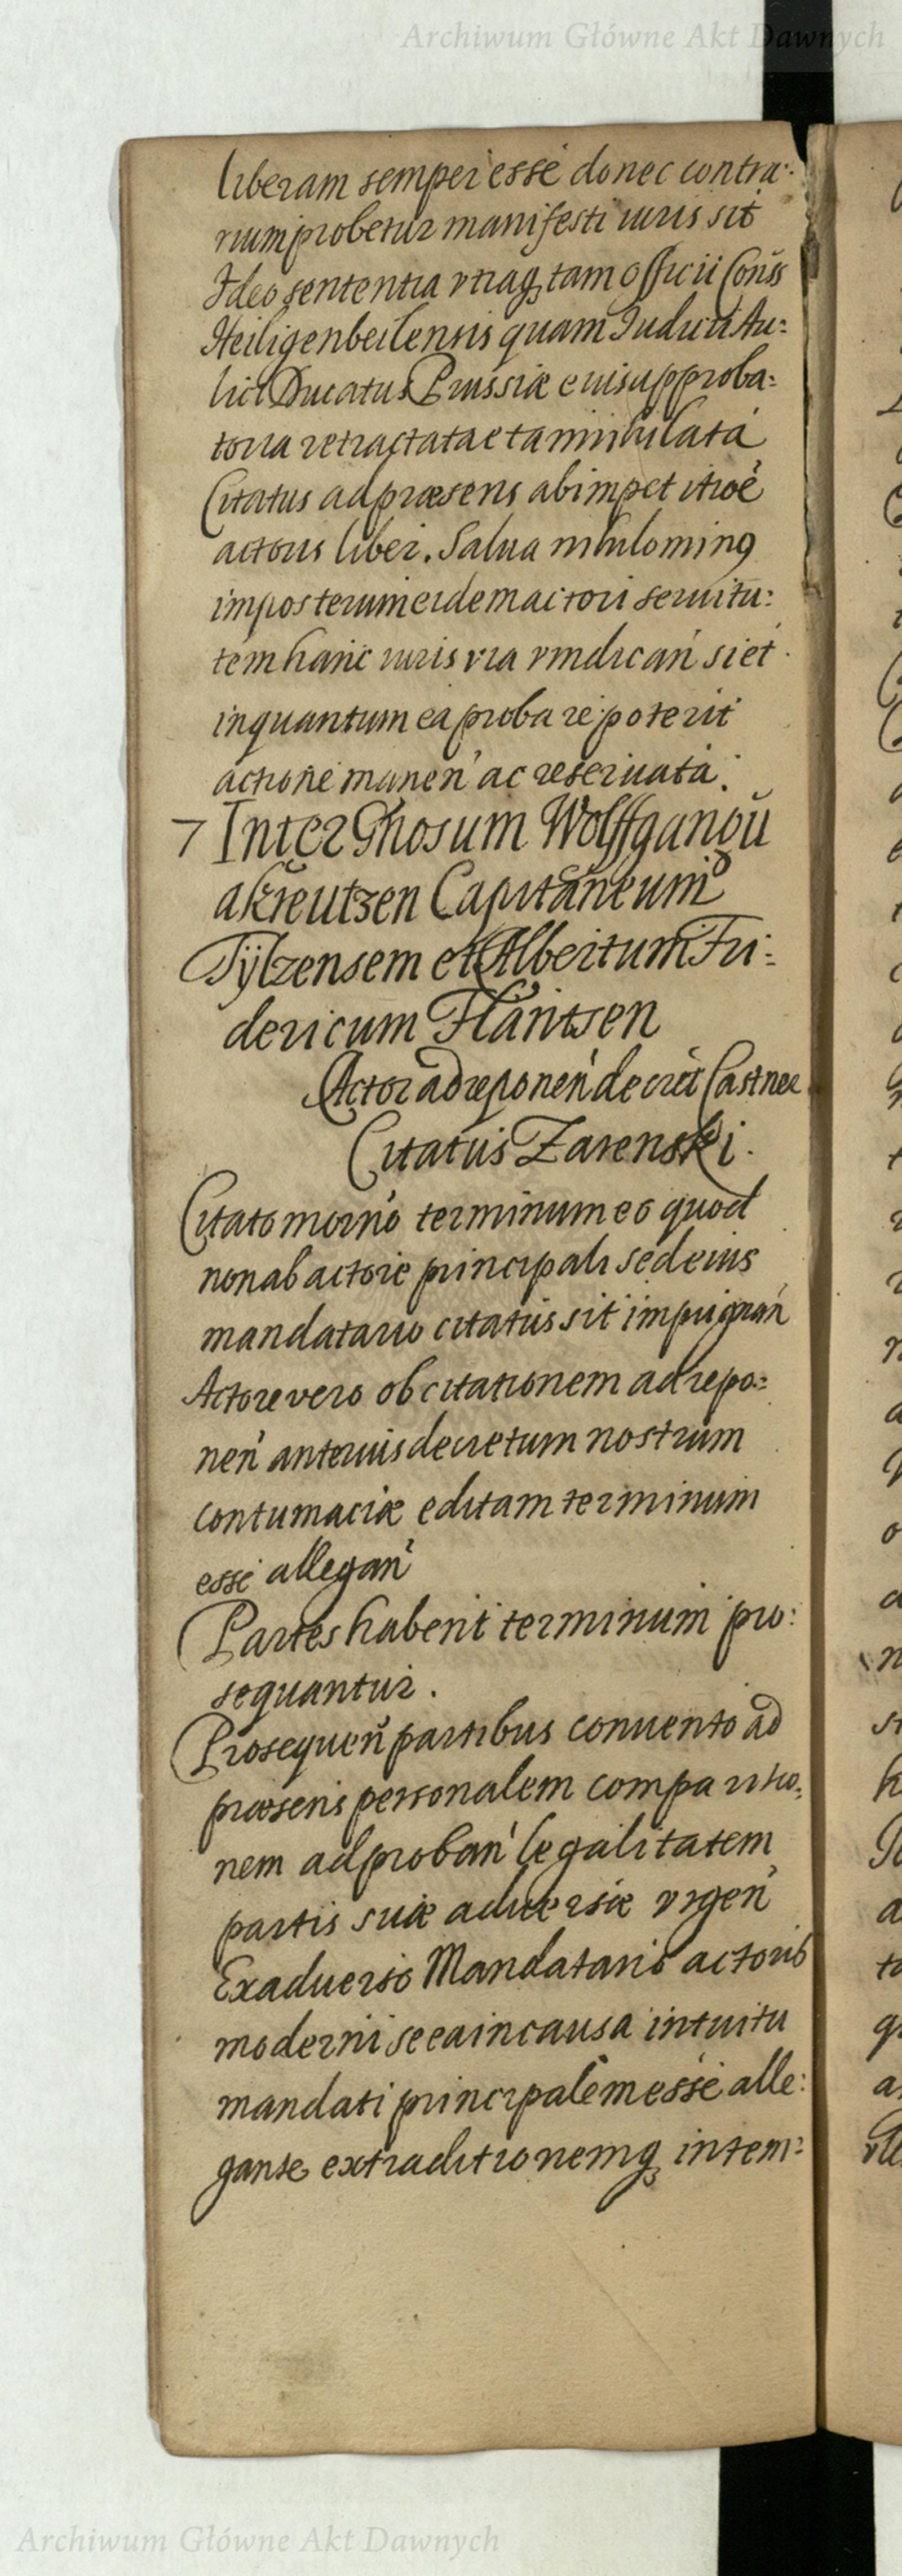 Archiwum Główne Akt Dawnych
liberam semper esse donec contra:
rium probetur manifesti iuris sit
Ideo sententia vtraq tam Officii Conss
Heiligenbeilensis quam Iudicii Au:
lici Ducatus Prussiæ eius approba:
toria retractata et annihilata
Citatus ad præsens ab impetitioe
actoris liber. Salua nihilominq
imposterum eidem actori seruitu:
tem hanc iuris via vindican si et
inquantum ea probare poterit
actione manen ac reseruata.
7 Inter Ghosum Wolffgangū
a Kreutzen Capitaneum
Tÿlzensem et Albertum Fri:
dericum Hantsen
Actor ad reponen decret Castner
Citatus Zarenski.
Citato moɾno terminum eo quod
non ab actore principali sed eius
mandatario citatus sit impugnan
Actore vero ob citationem ad repo:
nen anterius decretum nostrum
contumaciæ editam terminum
esse allegan
Partes habent terminum pro:
sequantur.
Prosequen partibus conuento ad
præsens personalem comparitio:
nem ad proban legalitatem
partis suæ aduersæ vrgen
Exaduerso Mandatario actoris
moderni se ea in causa intuitu
mandati principalem esse alle:
gante extraditionemq intem:
Archiwum Główne Akt Dawnych